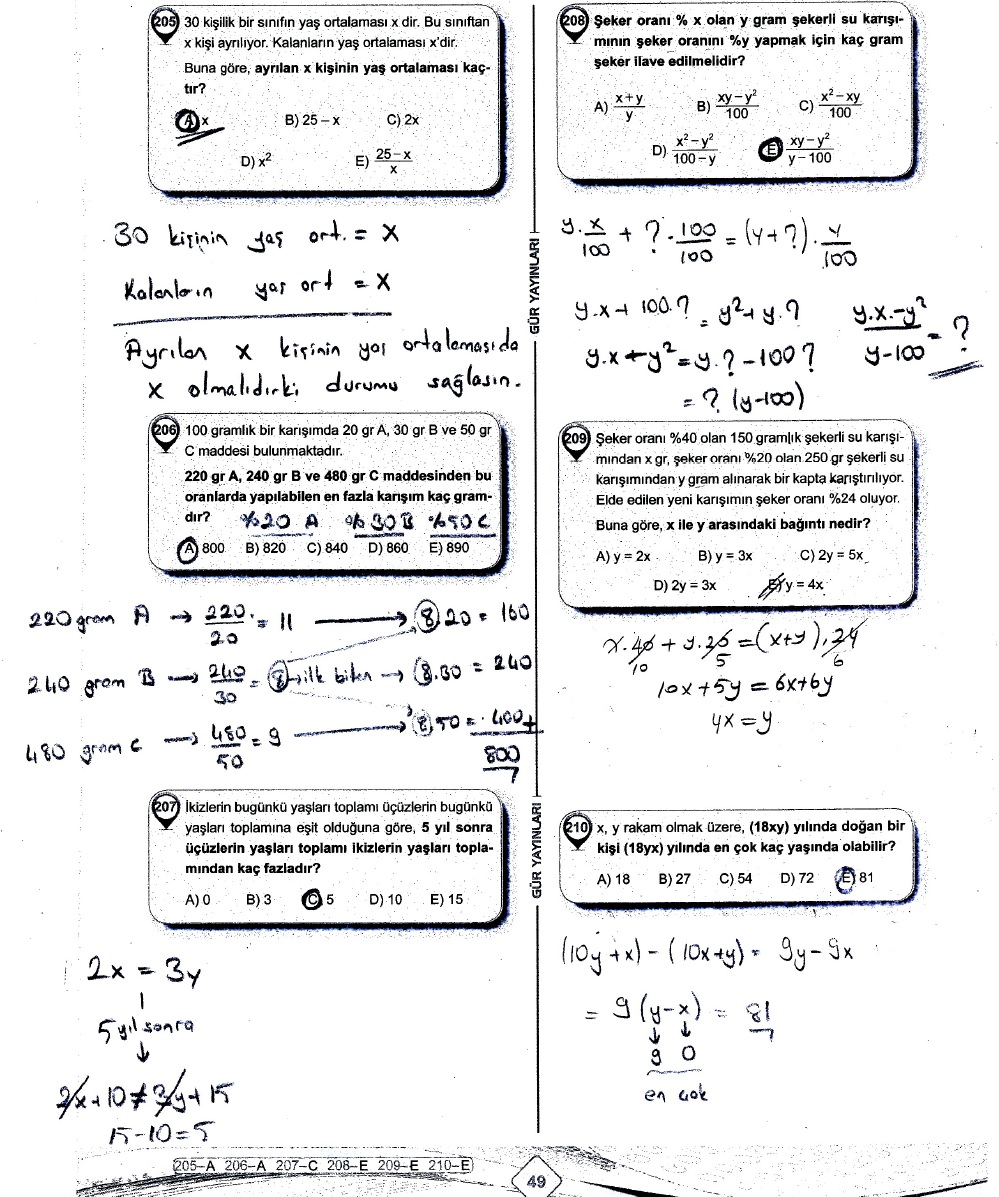 205 30 kişilik bir sınıfın yaş ortalaması x dir. Bu sınıftan
x kişi ayrılıyor. Kalanların yaş ortalaması x'dir.
Buna göre, ayrılan x kişinin yaş ortalaması kaç-
tır?
A) x B) 25 – x C) 2x
D) x² E) 25–x / x
30 kişinin yaş ort. = x
Kalanların yaş ort = x
Ayrılan x kişinin yaş ortalaması da
x olmalıdırki durumu sağlasın.
206 100 gramlık bir karışımda 20 gr A, 30 gr B ve 50 gr
C maddesi bulunmaktadır.
220 gr A, 240 gr B ve 480 gr C maddesinden bu
oranlarda yapılabilen en fazla karışım kaç gram-
dır? %20 A %30 B %50 C
A) 800 B) 820 C) 840 D) 860 E) 890
220 gram A → 220/20 = 11 → 8.20 = 160
240 gram B → 240/30 = 8 → ilk biten → 8.30 = 240
480 gram C → 480/50 = 9 → 8.50 = 400 +
800
207 İkizlerin bugünkü yaşları toplamı üçüzlerin bugünkü
yaşları toplamına eşit olduğuna göre, 5 yıl sonra
üçüzlerin yaşları toplamı ikizlerin yaşları topla-
mından kaç fazladır?
A) 0 B) 3 C) 5 D) 10 E) 15
2x = 3y
5 yıl sonra
2x+10 ≠ 3y+15
15-10=5
GÜR YAYINLARI
GÜR YAYINLARI
208 Şeker oranı % x olan y gram şekerli su karışı-
mının şeker oranını %y yapmak için kaç gram
şeker ilave edilmelidir?
A) x+y / y B) xy–y² / 100 C) x²–xy / 100
D) x²–y² / 100–y E) xy–y² / y–100
y.x/100 + ?.100/100 = (y+?).y/100
y.x+ 100.? = y²+ y.?
y.x+y² = y.?-100?
= ?(y-100)
y.x-y² / y-100 = ?
209 Şeker oranı %40 olan 150 gramlık şekerli su karışı-
mından x gr, şeker oranı %20 olan 250 gr şekerli su
karışımından y gram alınarak bir kapta karıştırılıyor.
Elde edilen yeni karışımın şeker oranı %24 oluyor.
Buna göre, x ile y arasındaki bağıntı nedir?
A) y = 2x B) y = 3x C) 2y = 5x
D) 2y = 3x E) y = 4x
x.40 + y.20 = (x+y).24
10 5 6
10x+5y = 6x+6y
4x = y
210 x, y rakam olmak üzere, (18xy) yılında doğan bir
kişi (18yx) yılında en çok kaç yaşında olabilir?
A) 18 B) 27 C) 54 D) 72 E) 81
(10y+x) - (10x+y) = 9y-9x
= 9(y-x) = 81
9 0
en çok
205–A 206–A 207–C 208–E 209–E 210–E
49